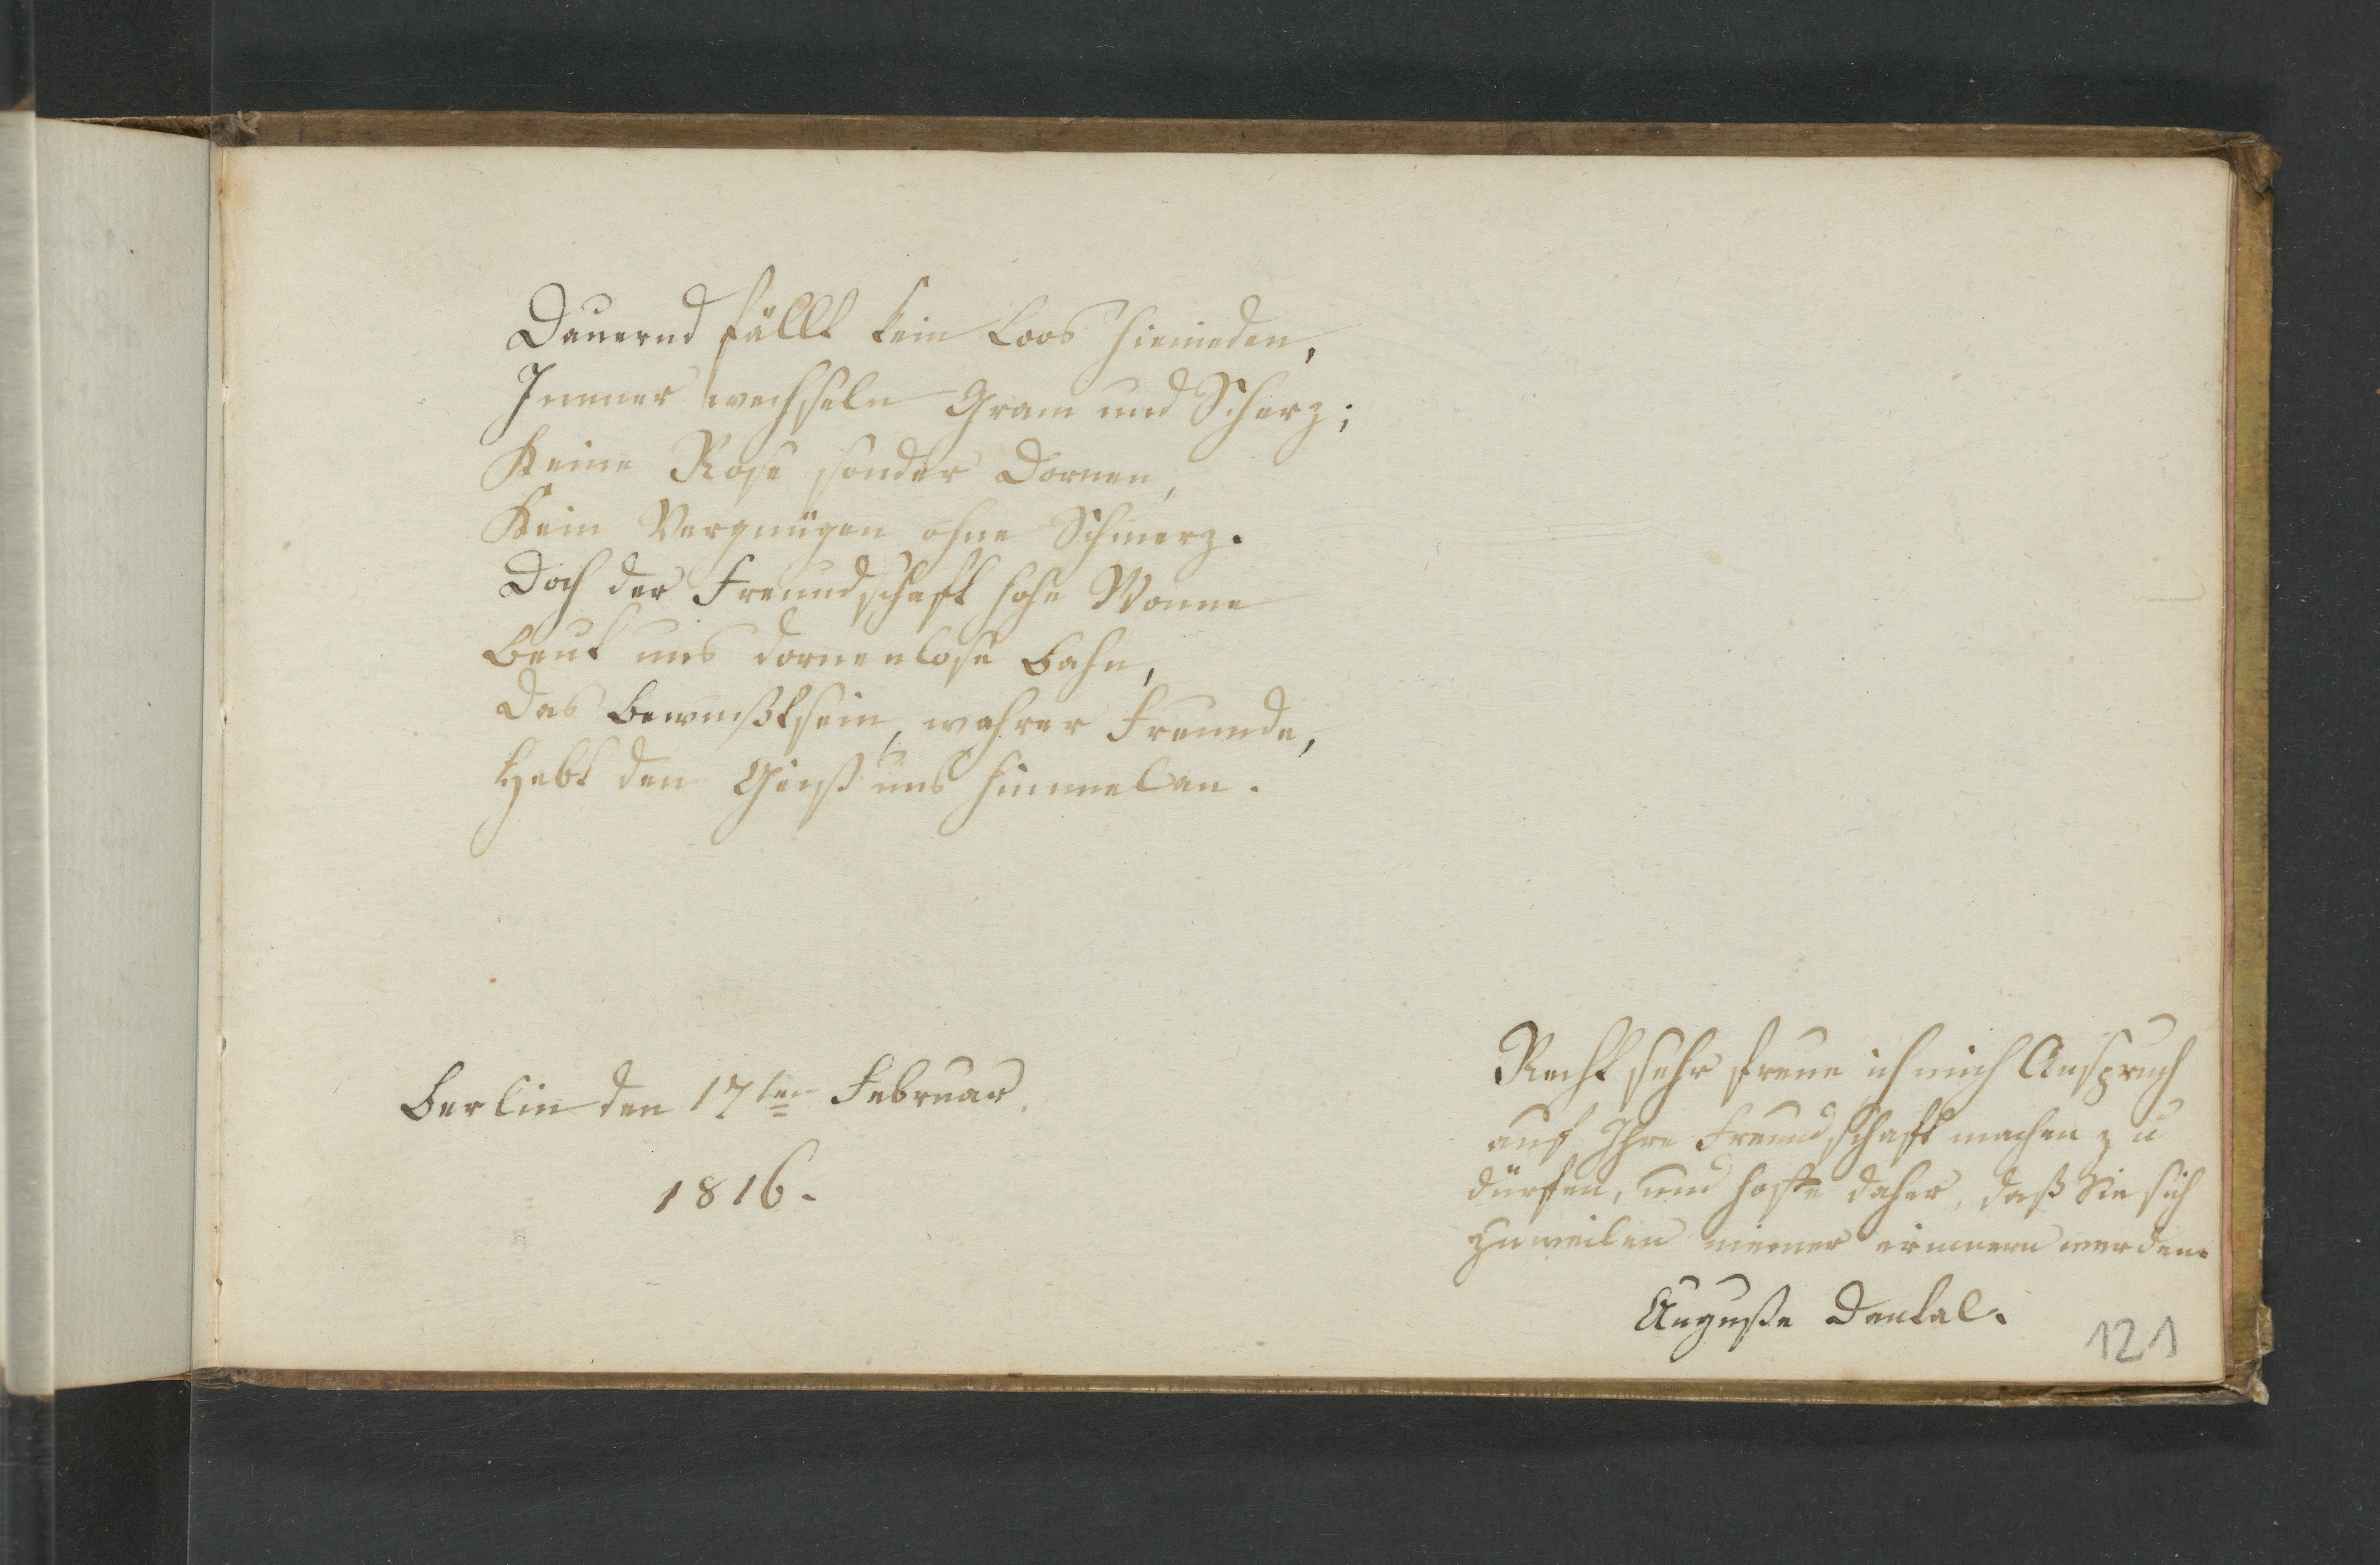 Dauernd fällt kein Loos hienieden,
Immer wechseln Gram und Scherz;
Keine Rose sonder Dornen,
Kein Vergnügen ohne Schmerz.
Doch der Freundschaft hohe Wonne
Beut uns dornenlose Bahn,
Das Bewußtsein, wahrer Freunde,
Hebt den Geist uns himmelan.
Berlin den 17ten Februar.
1816.
Recht sehr freue ich mich Anspruch
auf Ihre Freundschaft machen zu
dürfen, und hoffe daher, daß Sie sich
zuweilen meiner erinnern werden.
Auguste
121